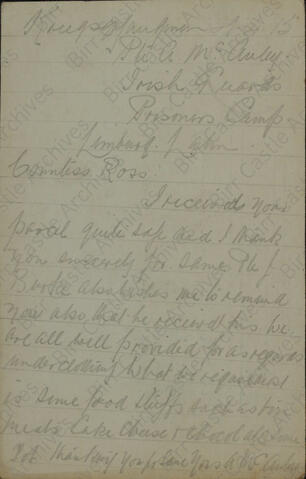 Pte A McAuley
Irish Guards
Prisoners Camp
Limburg
Countess Ross
I received your
parcel quite safe and I thank
you sincerely for same Pte J
Burke also wishes me to remind
you also that he received his we
are all well provided for as regards
underclothing what we require most
is some food stuffs such as tin
meats Cake Cheese & Chocolate
Thanking you Yours A McAuley
Birr Castle Archives